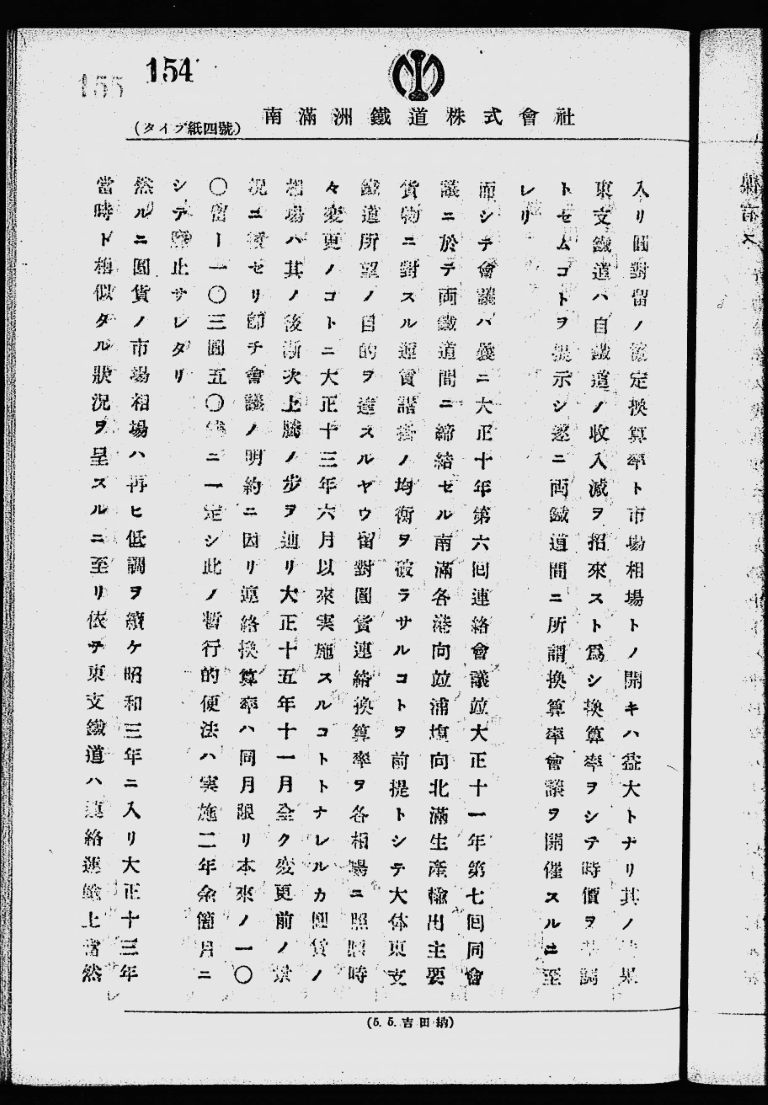 154
155
南滿洲鐵道株式會社
(タイプ紙四號)
入リ圓對留ノ法定換算率ト市場相場トノ開キハ益大トナリ其ノ結果
東支鐵道ハ自鐵道ノ收入減ヲ招來スト爲シ換算率ヲシテ時價ヲ基調
トセムコトヲ提示シ遂ニ両鐵道間ニ所謂換算率會議ヲ開催スルニ至
レリ
而シテ會議ハ曩ニ大正十年第六囘連絡會議竝大正十一年第七囘同會
議ニ於テ両鐵道間ニ締結セル南滿各港向竝浦塩向北滿生產輸出主要
貨物ニ對スル運賃諸掛ノ均衡ヲ破ラサルコトヲ前提トシテ大体東支
鐵道所望ノ目的ヲ達スルヤウ留對圓貨連絡換算率ヲ各相場ニ照應時
々変更ノコトニ大正十三年六月以來実施スルコトトナレルカ圓貨ノ
相場ハ其ノ後漸次上騰ノ步ヲ辿リ大正十五年十一月全ク変更前ノ狀
況ニ復セリ卽チ會議ノ明約ニ因リ連絡換算率ハ同月限リ本來ノ一〇
〇留ー一〇三圓五〇錢ニ一定シ此ノ暫行的便法ハ実施二年余箇月ニ
シテ廢止サレタリ
然ルニ圓貨ノ市場相場ハ再ヒ低調ヲ續ケ昭和三年ニ入リ大正十三年
當時ト相似タル狀況ヲ呈スルニ至リ依テ東支鐵道ハ連絡運輸上當然
(5. 5. 吉田納)